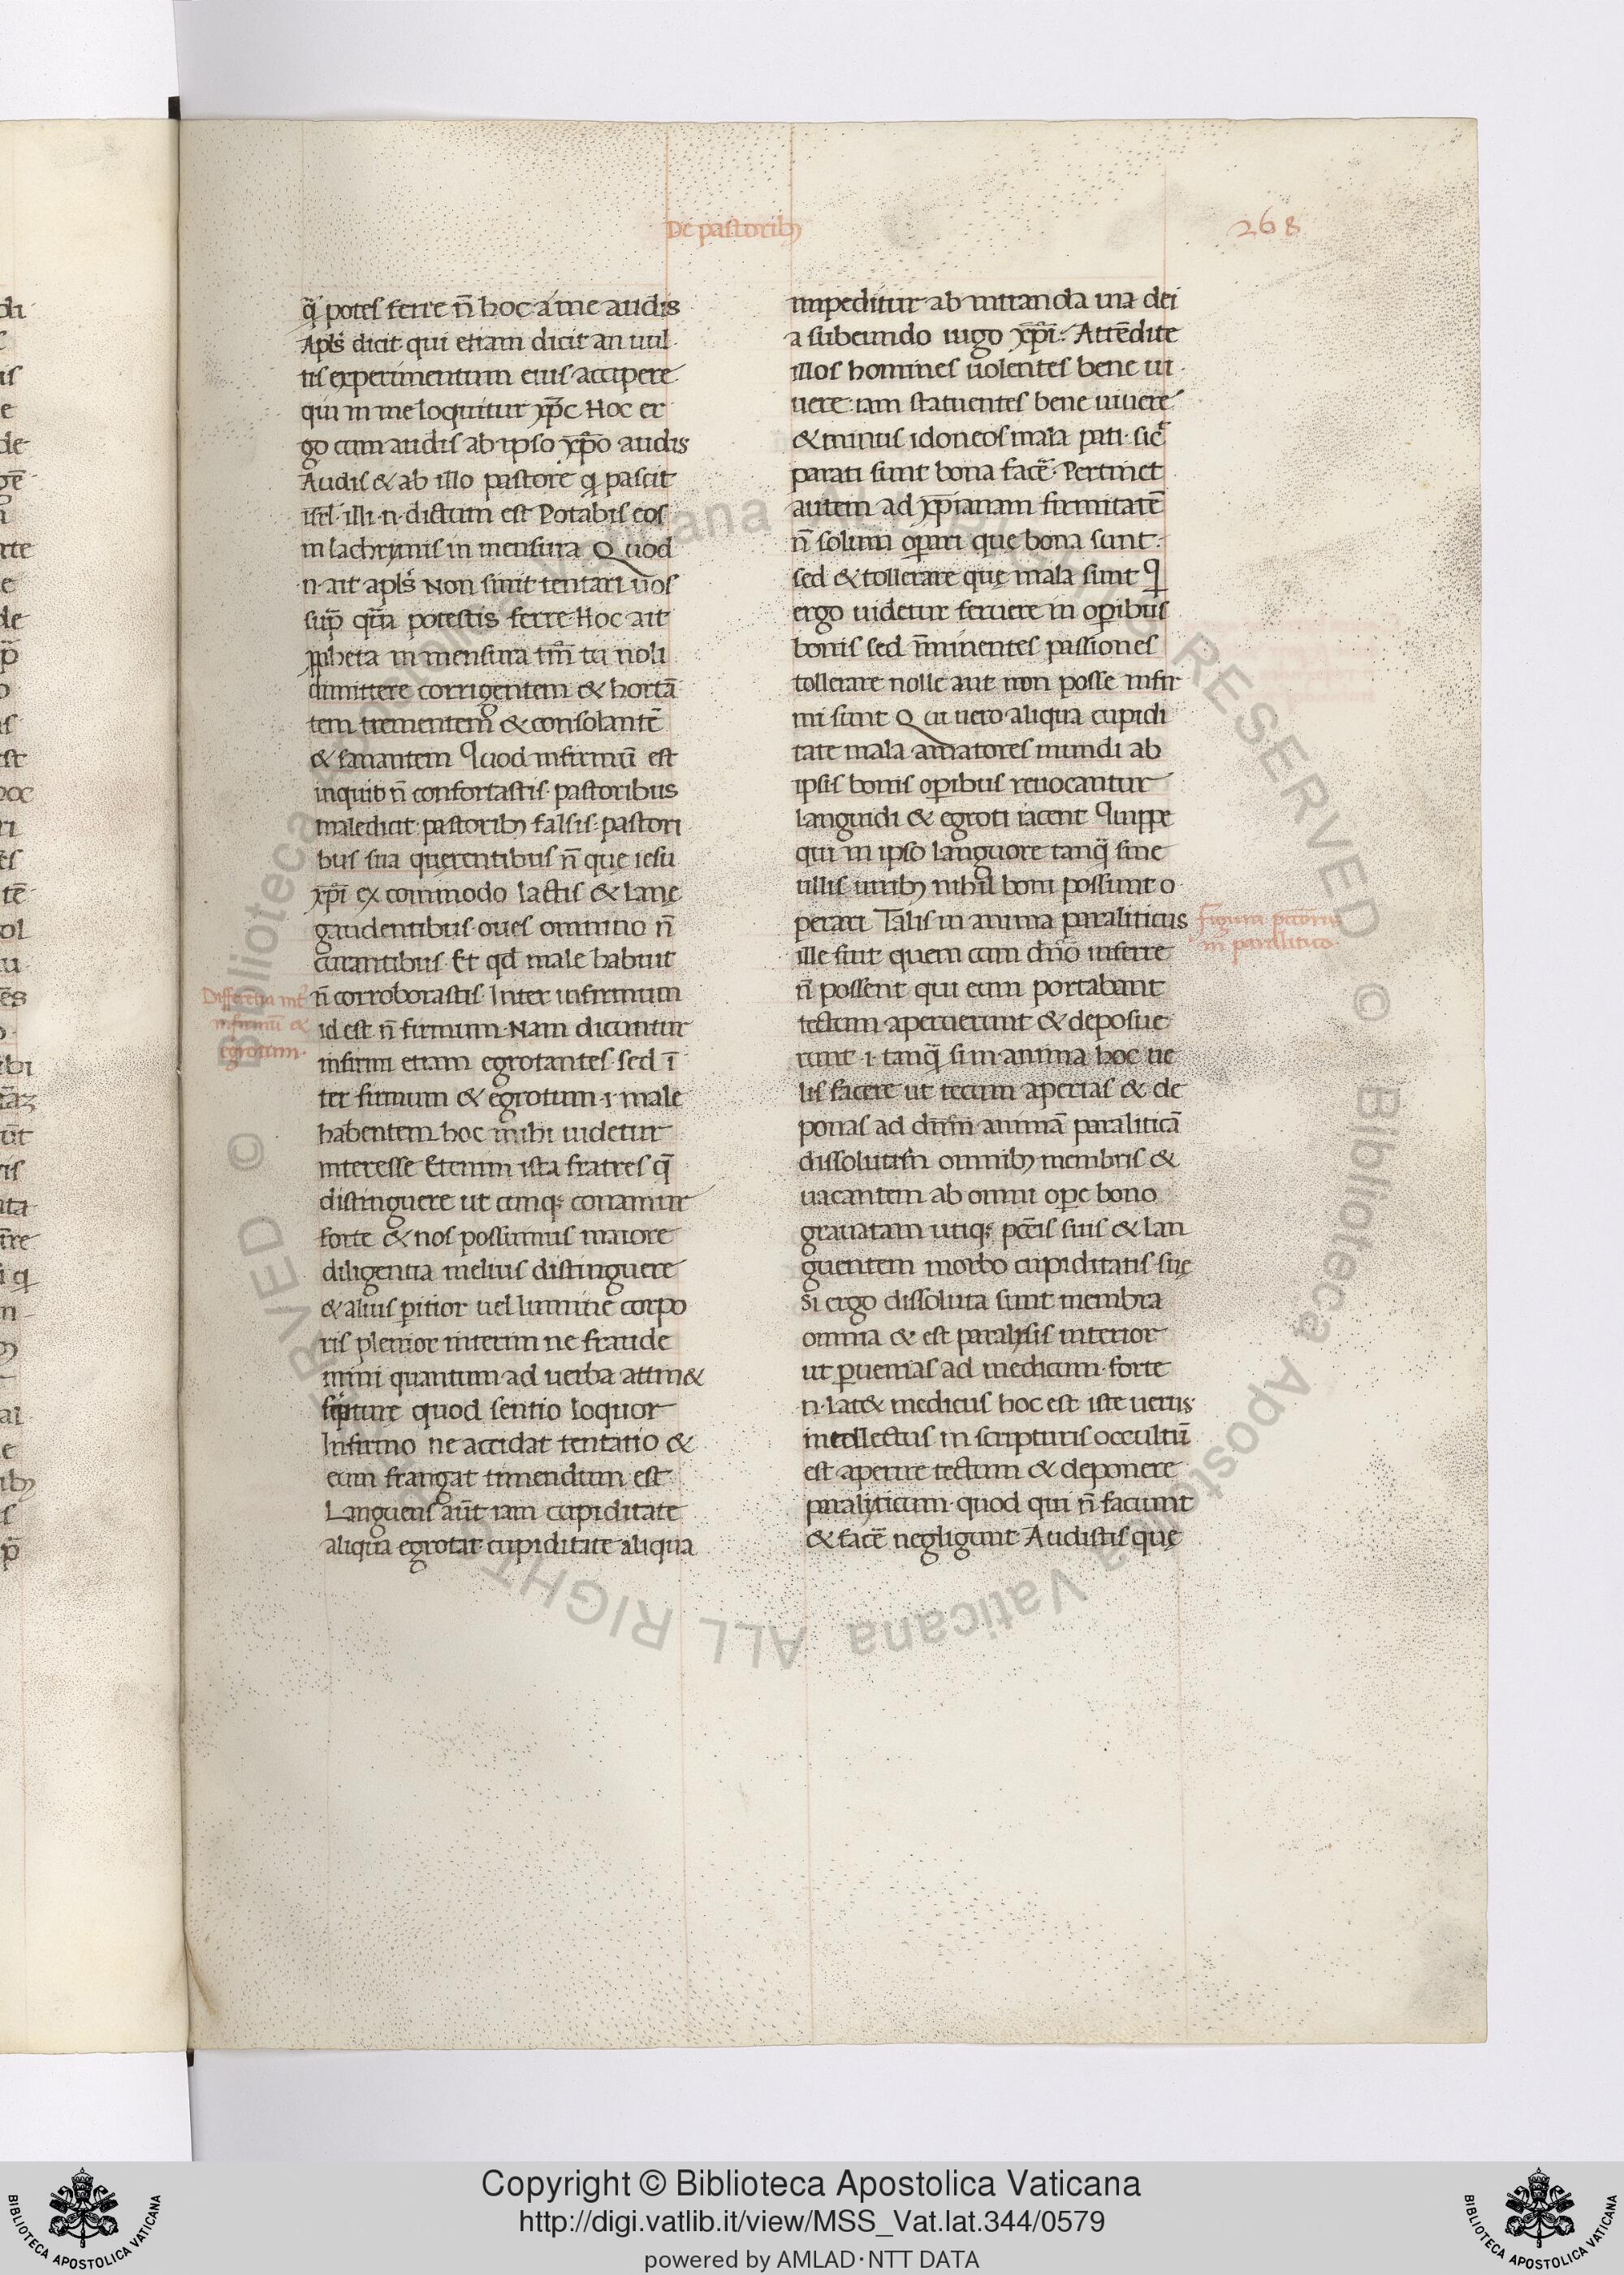 De pastoribꝫ
268
q̃ potes ferre n̄ hoc a me audis
Apl's dicit qui etiam dicit an uul
tis experimentum eius accipere
qui in me loquitur xp̄c Hoc er
go cum audis ab ipso xp̄o audis
Audis & ab illo pastore q̣ pascit
isrl illi n dictum est Potabis eos
in lachrymis in mensura Quod
n ait apl's Non sinit tentari uos
sup̄ qua̅ potestis ferre Hoc ait
ꝓpheta in mensura tm̄ tu noli
dimittere corrigentem & hortā
tem trementem & consolantē
& sanantem Quod infirmū est
inquit n̄ confortastis pastoribus
maledicit pastoribꝫ falsis pastori
bus sua querentibus n̄ que iesu
xp̄i ex commodo lactis & lanę
gaudentibus oues omnino n̄
curantibus Et qd male habuit
n̄ corroborastis Inter infirmum
id est n̄ firmum Nam dicuntur
infirmi etiam egrotantes sed ī
ter firmum & egrotum i male
habentem hoc mihi uidetur
interesse Etenim ista fratres q̄
distinguere ut cunqꝫ conamur
forte & nos possumus maiore
diligentia melius distinguere
& alius pitior uel lumine corpo
ris plenior interim ne fraude
mini quantum ad uerba attin&
scripture quod sentio loquor
Infirmo ne accidat tentatio &
eum frangat timendum est
Languens aūt iam cupiditate
aliqua egrotat cupiditate aliqua
Differētia int'
infirmū &
egrotum
impeditur ab intranda uia dei
a subeundo iugo xp̄i Attēdite
illos homines uolentes bene ui
uere iam statuentes bene uiuere
& minus idoneos mala pati sic̄
parati sunt bona facē Pertinet
autem ad xp̄ianam firmitatē
n̄ solum operari que bona sunt
sed & tollerare quę mala sunt Q
ergo uidetur feruere in opibus
bonis sed īminentes passiones
tollerare nolle aut non posse infir
mi sunt Qui uero aliqua cupidi
tate mala amatores mundi ab
ipsis bonis opibus reuocantur
languidi & egroti iacent Quippe
qui in ipso languore tanq̃ sine
ullis uiribꝫ nihil boni possunt o
perari Talis in anima paraliticus
ille fuit quem cum dn̄o inferre
n̄ possent qui eum portabant
tectum aperuerunt & deposue
runt i tanq̃ si in anima hoc ue
lis facere ut tectum aperias & de
ponas ad dnm animā paraliticā
dissolutam omnibꝫ membris &
uacantem ab omni ope bono
grauatam utiqꝫ pccīs suis & lan
guentem morbo cupiditatis suę
Si ergo dissoluta sunt membra
omnia & est paralysis interior
ut puenias ad medicum forte
n lat& medicus hoc est iste uerus
intellectus in scripturis occultū
est aperire tectum & deponere
paralyticum quod qui n̄ faciunt
& facē negligunt Audistis quę
Figura pcc̄oris
in paralitico
Copyright © Biblioteca Apostolica Vaticana
http://digi.vatlib.it/view/MSS_Vat.lat.344/0579
powered by AMLAD·NTT DATA
BIBLIOTECA APOSTOLICA VATICANA
BIBLIOTECA APOSTOLICA VATICANA